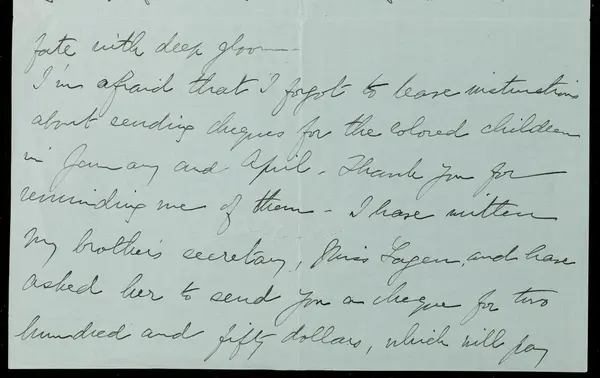 fate with deep gloom—
I'm afraid that I forgot to leave instructions
about sending cheques for the colored children
in January and April. Thank you for
reminding me of them – I have written
my brother's secretary, Miss Fagen, and have
asked her to send you a cheque for two
hundred and fifty dollars, which will pay